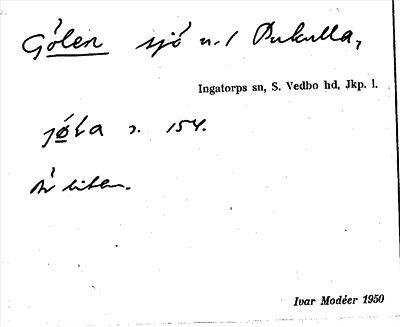 Gölen sjö n. / Pukulla,
Ingatorps sn, S. Vedbo hd, Jkp. l.
s. 154.
Är liten.
Ivar Modéer 1950